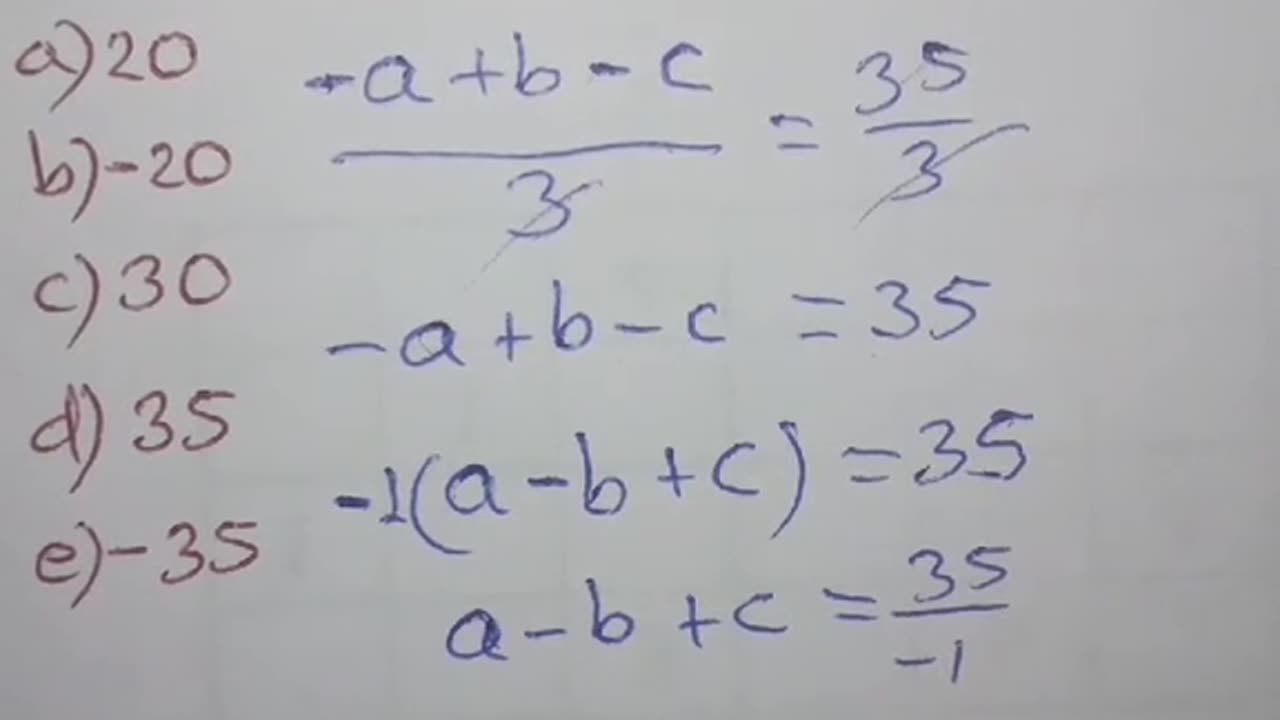 a) 20
b) -20
c) 30
d) 35
e) -35
-a + b - c
3
=
35
3
-a + b - c = 35
-1(a - b + c) = 35
a - b + c = 35
-1